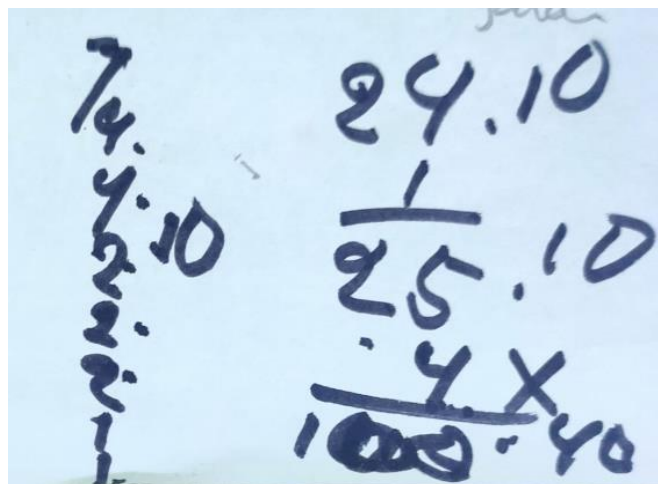 7
4.
4.
2.10
2.
2.
1
1
24.10
1
25.10
.4 X
100.40